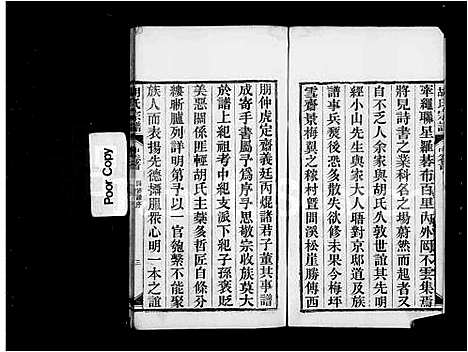 牽繩聯星羅碁布百里內外罔不雲集焉
將見詩書之業科名之場蔚然而起代
自不乏人余家與胡氏久敦世誼而譜
經小山先生與家大人晤對京邸道及族
譜事兵燹後多散失欲修未果今梅坪
雪齋景梅巽之稼村暨閒溪松崖勝傳西
胡氏宗譜
朋仲虎定齋義廷丙焜諸君子董其事譜
成寄手書屬予予思敬宗收族莫大
於譜上紀祖考中紀支派下紀子孫褒貶
美惡關係匪輕胡氏主葉多哲匠自必
縷晰臚列詳明第予以一官匏繫不能聚
族人而表揚先德攄服眾心明一本之誼
Poor Copy